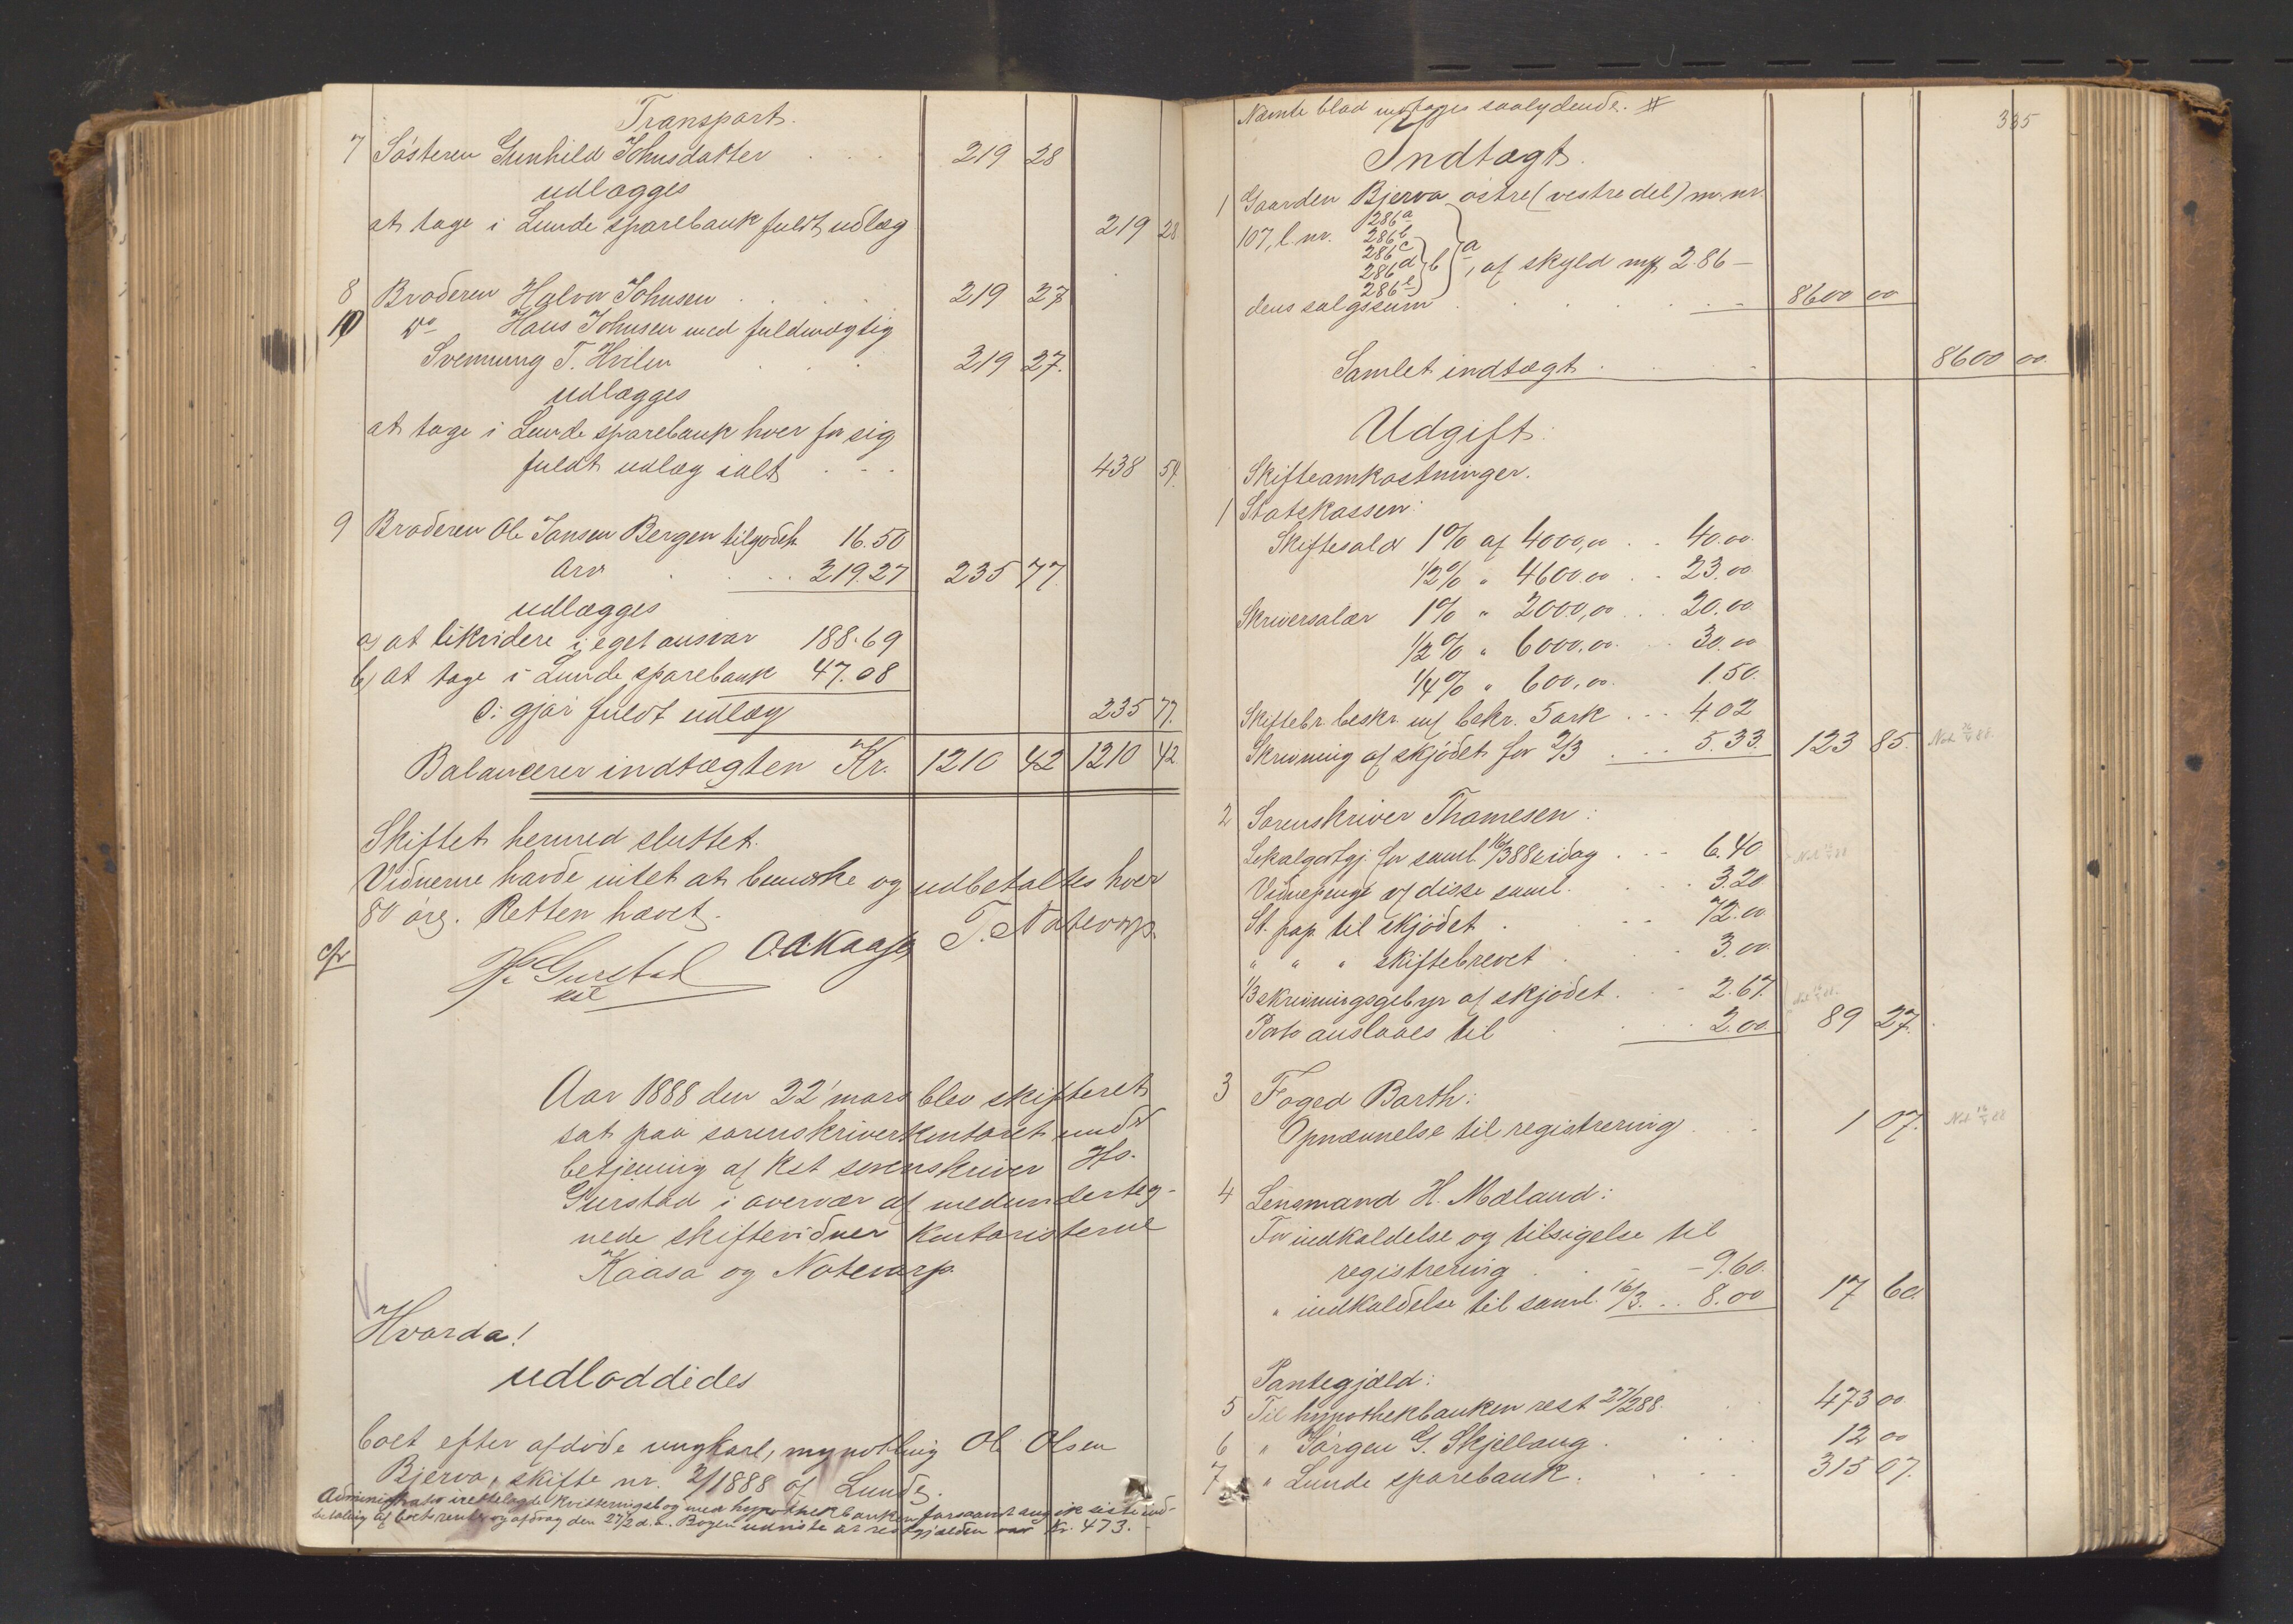 Transport.
7 Søsteren Gunhild Johnsdatter . . . 219 28
udlægges
at tage i Lunde sparebank fuldt udlæg 219 28
8 Broderen Halvor Johnsen . . . 219 27
10 do Hans Johnsen med fuldmægtig
Svennung T. Hvilen . . . 219 27.
udlægges
at tage i Lunde sparebank hver for sig
fuldt udlæg ialt . . . 438 54.
9 Broderen Ole Jansen Bergen tilgodeh. 16.50
Arv . . . 219.27 235 77.
udlægges
a) at likvidere i eget ansvar 188.69
b) at tage i Lunde sparebank 47.08
ɔ: gjør fuldt udlæg 235 77.
Balancerer indtægten Kr. 1210 42 1210 42.
Skiftet hermed sluttet.
Vidnerne havde intet at bemærke og udbetaltes hver
80 øre. Retten hævet.
Hs Gurstad O.A. Kaasa T. Notevarp.
kst
Aar 1888 den 22' mars blev skifteret
sat paa sorenskriverkontoret under
betjening af kst sorenskriver Hs.
Gurstad i overvær af medunderteg-
nede skiftevidner kontoristerne
Kaasa og Notevarp.
Hvorda!
udloddedes
boet efter afdøde ungkarl, myndling Ole Olsen
Bjerva, skifte nr. 2/1888 af Lunde.
Administrator irettelagde kvitteringsbog med hypothekbanken forsaavidt angik sidste ind-
betaling af boets renter og afdrag den 27/2 d.a. Bogen udviste at restgjælden var Kr. 473.-
Nævnte blad indtages saalydende. #
335
Indtægt.
1 Gaarden Bjerva østre (vestre del) m. nr.
107, l. nr. 286a
286b
286c
286d } b } a, af skyld mk 2.86 –
286e
dens salgssum . . . 8600 00
Samlet indtægt . . . 8600 00.
Udgift:
Skifteomkostninger.
1 Statskassen:
Skiftesalær 1% af 4000,00 . . 40.00.
1/2% " 4600.00 . . 23.00.
Skriversalær 1% " 2000,00 . . 20.00
1/2% " 6000.00. . . 30.00
1/4% " 600,00. 1.50.
Skiftebr. beskr. m/ bekr. 5 ark . . . 4.02
Skrivning af skjødet for 2/3 . . . 5.33. 123 85.
2 Sorenskriver Thomesen:
Lokalgodtgj. for saml. 16/3 88 & idag . . . 6.40
Vidnepenge af disse saml. . . . 3.20
St. pap. til skjødet . . . 72.00
" " " skiftebrevet . . . 3.00
1/3 skrivningsgebyr af skjødet . . . 2.67.
Porto anslaaes til . . . 2.00. 89 27.
3 Foged Barth:
Opnævnelse til registrering . . . 1 07.
4 Lensmand H. Mæland:
For indkaldelse og tilsigelse til
registrering . . . 9.60.
" indkaldelse til saml. 16/3. . . 8.00 17 60
Pantegjæld:
5 Til hypothekbanken rest 27/2 88. . 473 00.
6 " Jørgen G. Skjellaug . . . 12 00
7 " Lunde sparebank. . . . 315 07.